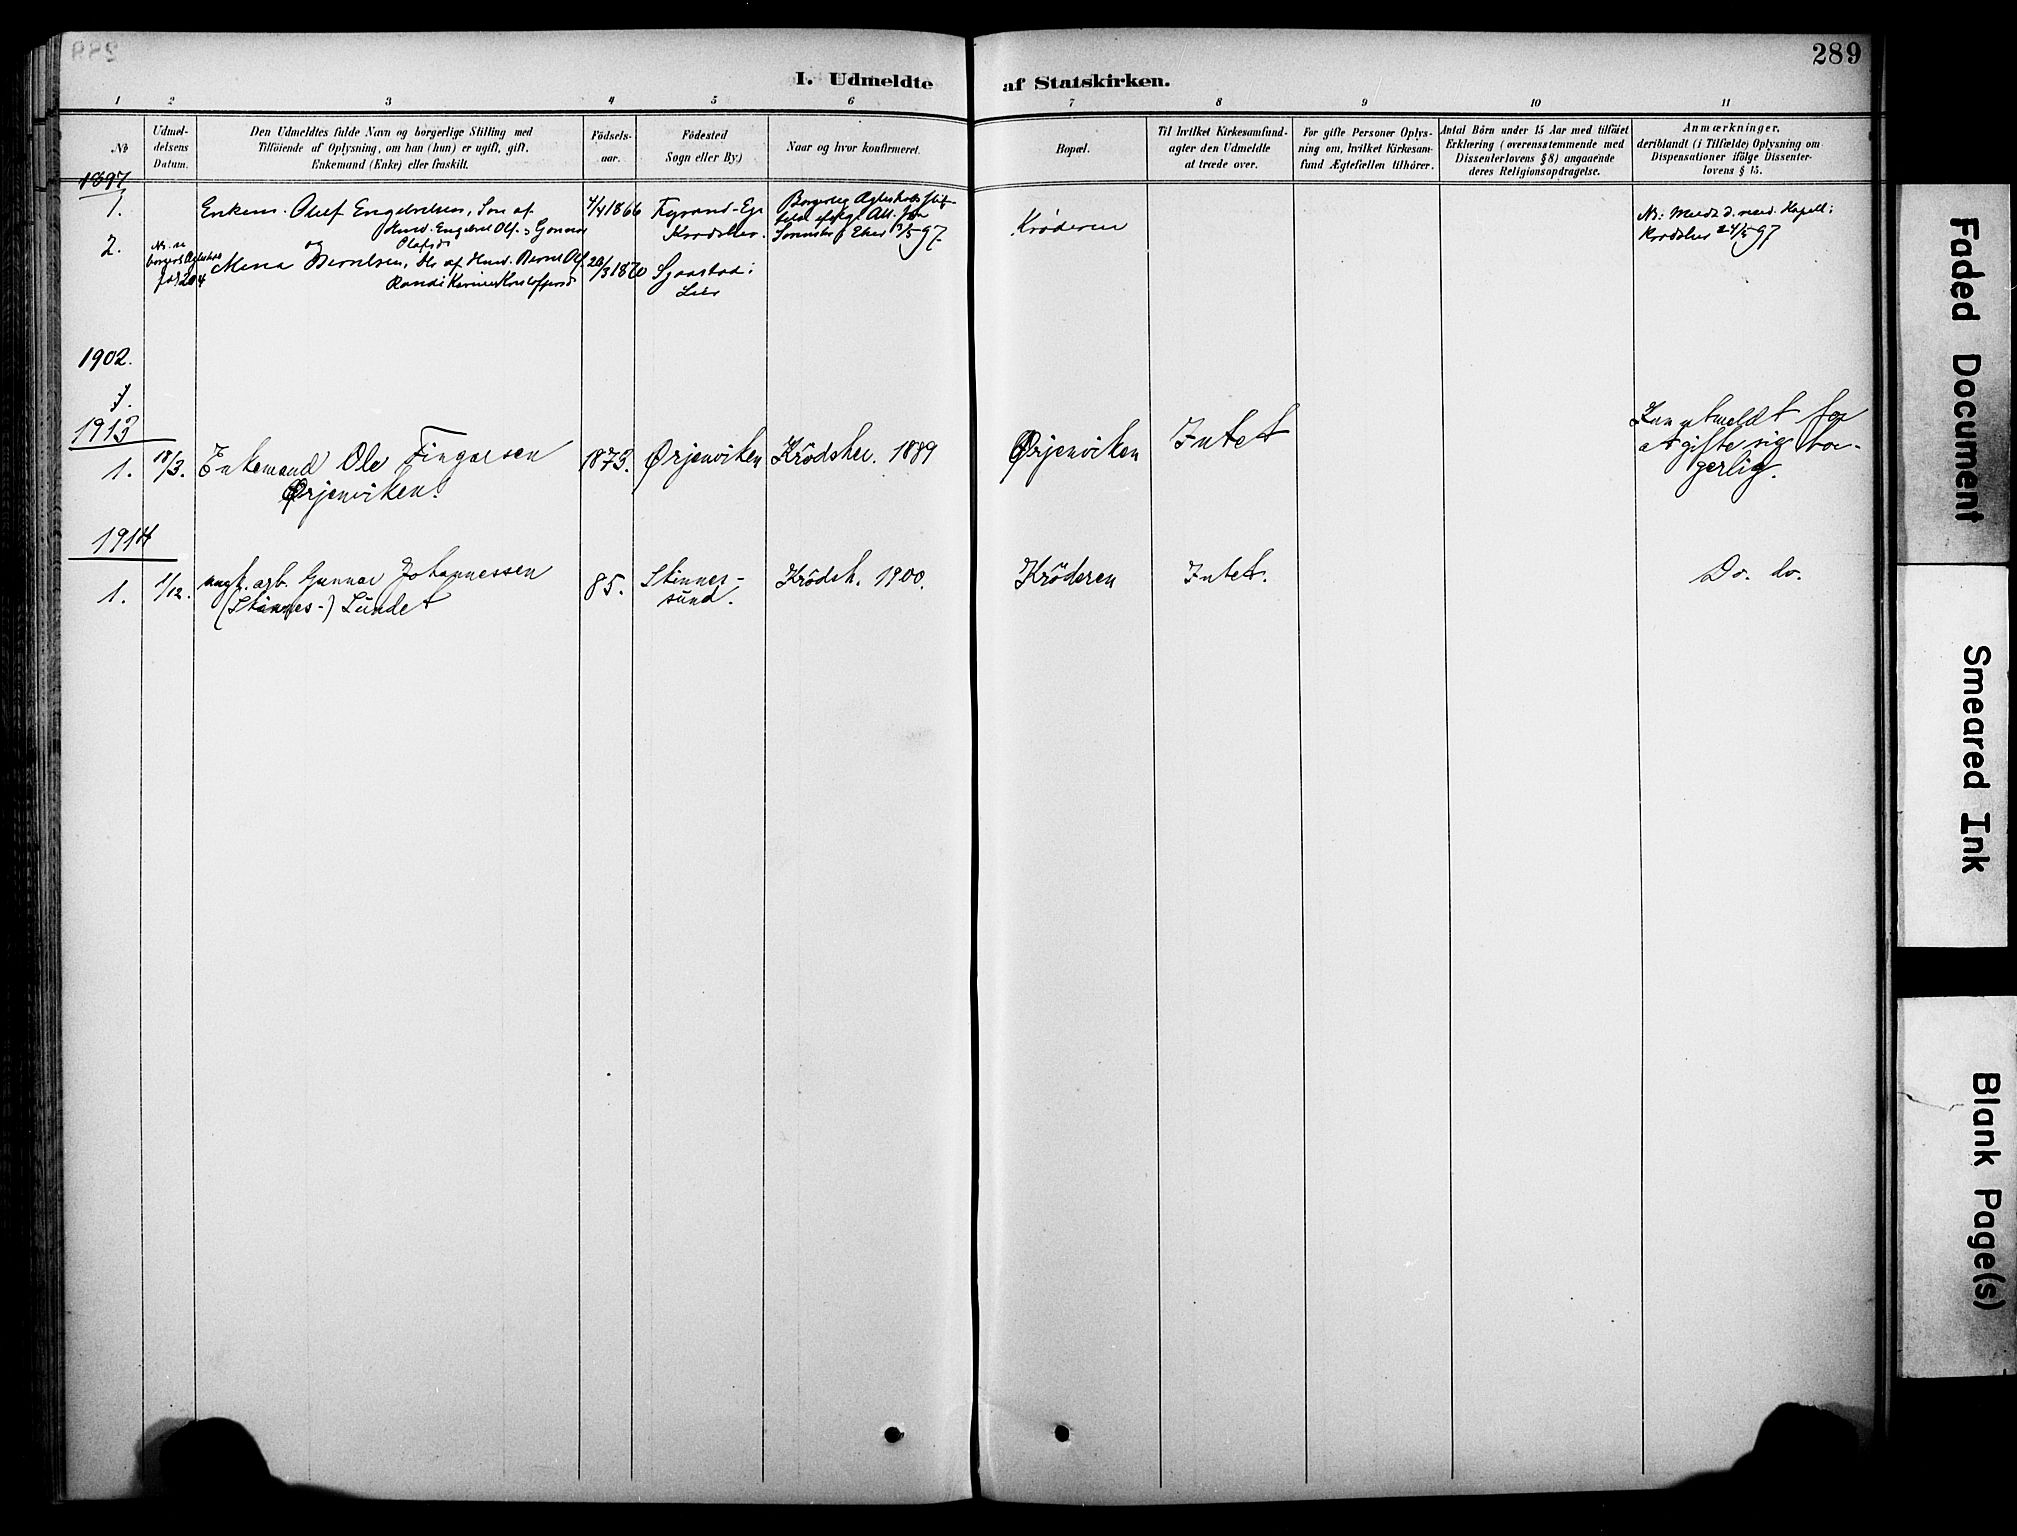 289
I. Udmeldte af Statskirken.
1 2 3 4 5 6 7 8 9 10 11
No
Udmel-
delsens
Datum.
Den Udmeldtes fulde Navn og borgerlige Stilling med
Tilföiende af Oplysning, om han (hun) er ugift, gift,
Enkemand (Enke) eller fraskilt.
Födsels-
aar.
Födested
Sogn eller By)
Naar og hvor konfirmeret.
Bopæl.
Til hvilket Kirkesamfund-
agter den Udmeldte
at træde over.
For gifte Personer Oplys-
ning om, hvilket Kirkesam-
fund Ægtefællen tilhörer.
Antal Börn under 15 Aar med tilföiet
Erklæring (overensstemmende med
Dissenterlovens § 8) angaaende
deres Religionsopdragelse.
Anmærkninger,
deriblandt (i Tilfælde) Oplysning om
Dispensationer ifölge Dissenter-
lovens § 15.
1897
1.
Enkem. Oluf Engebretsen, Sön af
Husmd. Engebret Ols.
Olafsd
4/4 1866
Krødsher.
Borgerlig
97
Krøderen
24/5 97
2.
og
20/3 1870
Lier
1902.
1.
1913
1. 18/3. Enkemand Ole Fingarsen
Ørjenviken.
1873.
Ørjenviken
Krödsher. 1889
Ørjenviken
Intet
Kun utmeldt for
at gifte sig bor-
gerlig.
1914
1. 1/12. ungk. arb. Gunnar Johannessen
(Stinnes-) Sundet
85.
Stinnes-
sund.
Krödsh. 1900.
Kröderen
Intet.
Do. do.
Faded Document
Smeared Ink
Blank Page(s)